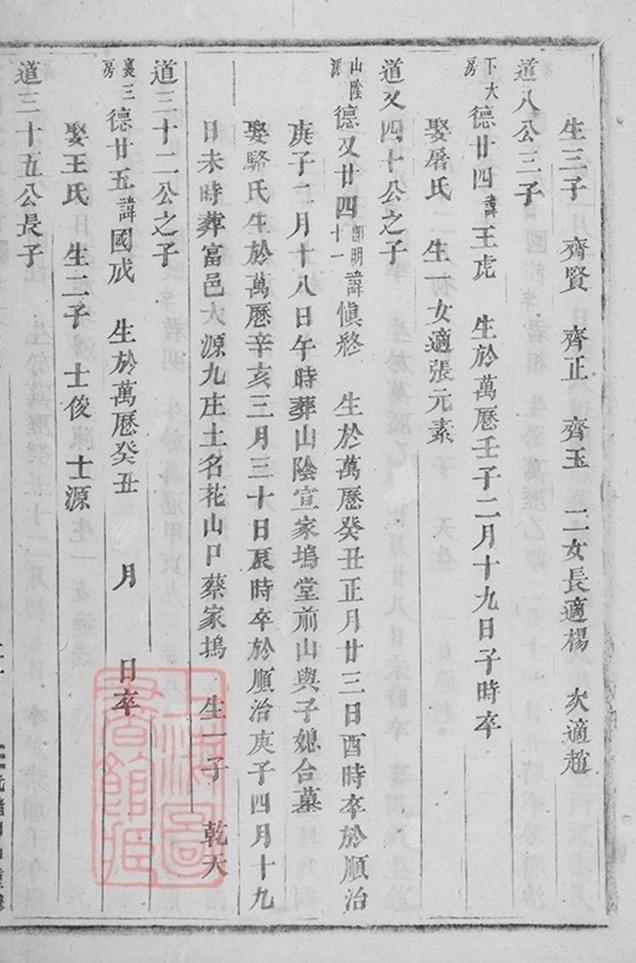 生三子 齊賢 齊正 齊玉 二女長適楊 次適趙
道八公三子
下大房 德廿四 諱 王虎 生於萬歷壬子二月十九日子時卒
娶屠氏 生一女適張元素
道又四十公之子
山陰源 德又廿四 十一 諱 愼終 生於萬歷癸丑正月廿三日酉時卒於順治
庚子二月十八日午時葬山陰宣家塢堂前山與子媳台墓
娶駱氏生於萬歷辛亥三月三十日辰時卒於順治庚子四月十九
日未時葬富邑大源九庄土名花山口蔡家塢 生一子 乾天
道三十二公之子
裏三房 德廿五 諱 國戒 生於萬歷癸丑 月 日卒
娶王氏 生二子 士俊 士源
道三十五公長子
上海圖書館藏